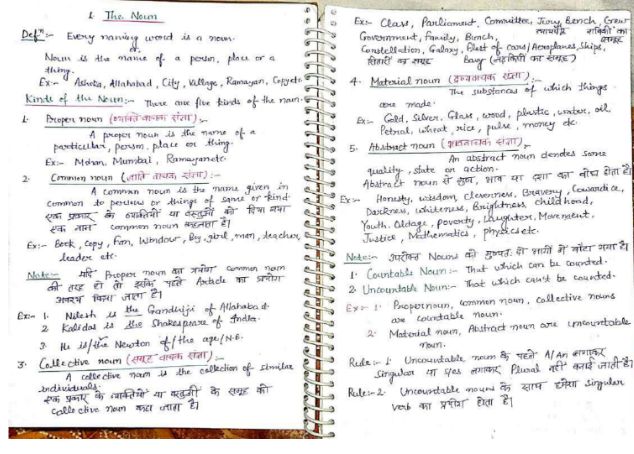 1. The Noun
Defⁿ:- Every naming word is a noun.
or
Noun is the name of a person, place or a
thing.
Ex:- Ashoka, Allahabad, City, Village, Ramayan, Copy etc.
Kinds of the Noun:- There are five kinds of the noun.
1. Proper noun (व्यक्ति वाचक संज्ञा):-
A proper noun is the name of a
particular, person, place or thing.
Ex:- Mohan, Mumbai, Ramayan etc.
2. Common noun (जाति वाचक संज्ञा):-
A common noun is the name given in
common to persons or things of same or kind
एक प्रकार के व्यक्तियों या वस्तुओं को दिया गया
एक नाम common noun कहलाता है।
Ex:- Book, Copy, Fan, Window, Boy, girl, man, teacher,
leader etc.
Note:- यदि Proper noun का प्रयोग common noun
की तरह हो तो इसके पहले Article का प्रयोग
अवश्य किया जाता है।
Ex:- 1. Nilesh is the Gandhiji of Allahabad.
2. Kalidas is the Shakespeare of India.
3. He is the Newton of the age/N.E.
3. Collective noun (समूह वाचक संज्ञा):-
A collective noun is the collection of similar
individuals.
एक प्रकार के व्यक्तियों या वस्तुओं के समूह को
collective noun कहा जाता है।
Ex:- Class, Parliament, Committee, Jury, Bench, Crew
Government, Family, Bench,
Constellation, Galaxy, Fleet of Cars/Aeroplanes, Ships,
तारों का समूह Bevy (लड़कियों का समूह)
4. Material noun (द्रव्यवाचक संज्ञा):-
The substances of which things
are made.
Ex:- Gold, Silver, Glass, wood, plastic, water, oil
Petrol, wheat, rice, pulse, money etc.
5. Abstract noun (भाववाचक संज्ञा):-
An abstract noun denotes some
quality, state or action.
Abstract noun से गुण, भाव या दशा का बोध होता है।
Ex:- Honesty, wisdom, cleverness, Bravery, Cowardice,
Darkness, whiteness, Brightness, childhood,
Youth, Oldage, poverty, Laughter, Movement,
Justice, Mathematics, physics etc.
Note:- उपरोक्त Nouns को मुख्यतः दो भागों में बाँटा गया है।
1. Countable Noun:- That which can be counted.
2. Uncountable Noun:- That which can't be counted.
Ex:- 1. Proper noun, common noun, collective nouns
are countable noun.
2. Material noun, Abstract noun are uncountable
noun.
Rule:- 1. Uncountable noun के पहले A/An लगाकर
Singular या s/es लगाकर Plural नहीं बनाई जाती है।
Rule:- 2. Uncountable nouns के साथ हमेशा singular
verb का प्रयोग होता है।